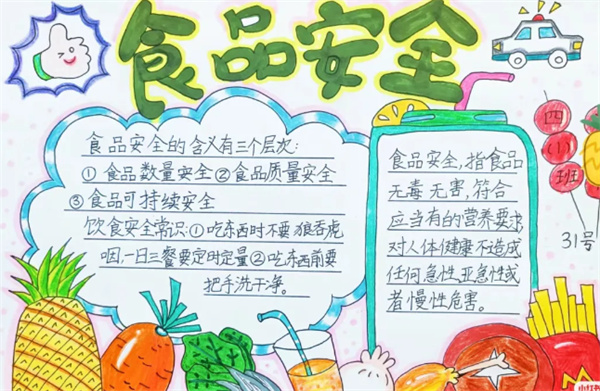 食品安全
食品安全的含义有三个层次:
①食品数量安全②食品质量安全
③食品可持续安全
饮食安全常识:①吃东西时不要狼吞虎
咽,一日三餐要定时定量②吃东西前要
把手洗干净。
食品安全,指食品
无毒无害,符合
应当有的营养要求,
对人体健康不造成
任何急性、亚急性或
者慢性危害。
四(1)班
31号
小红书